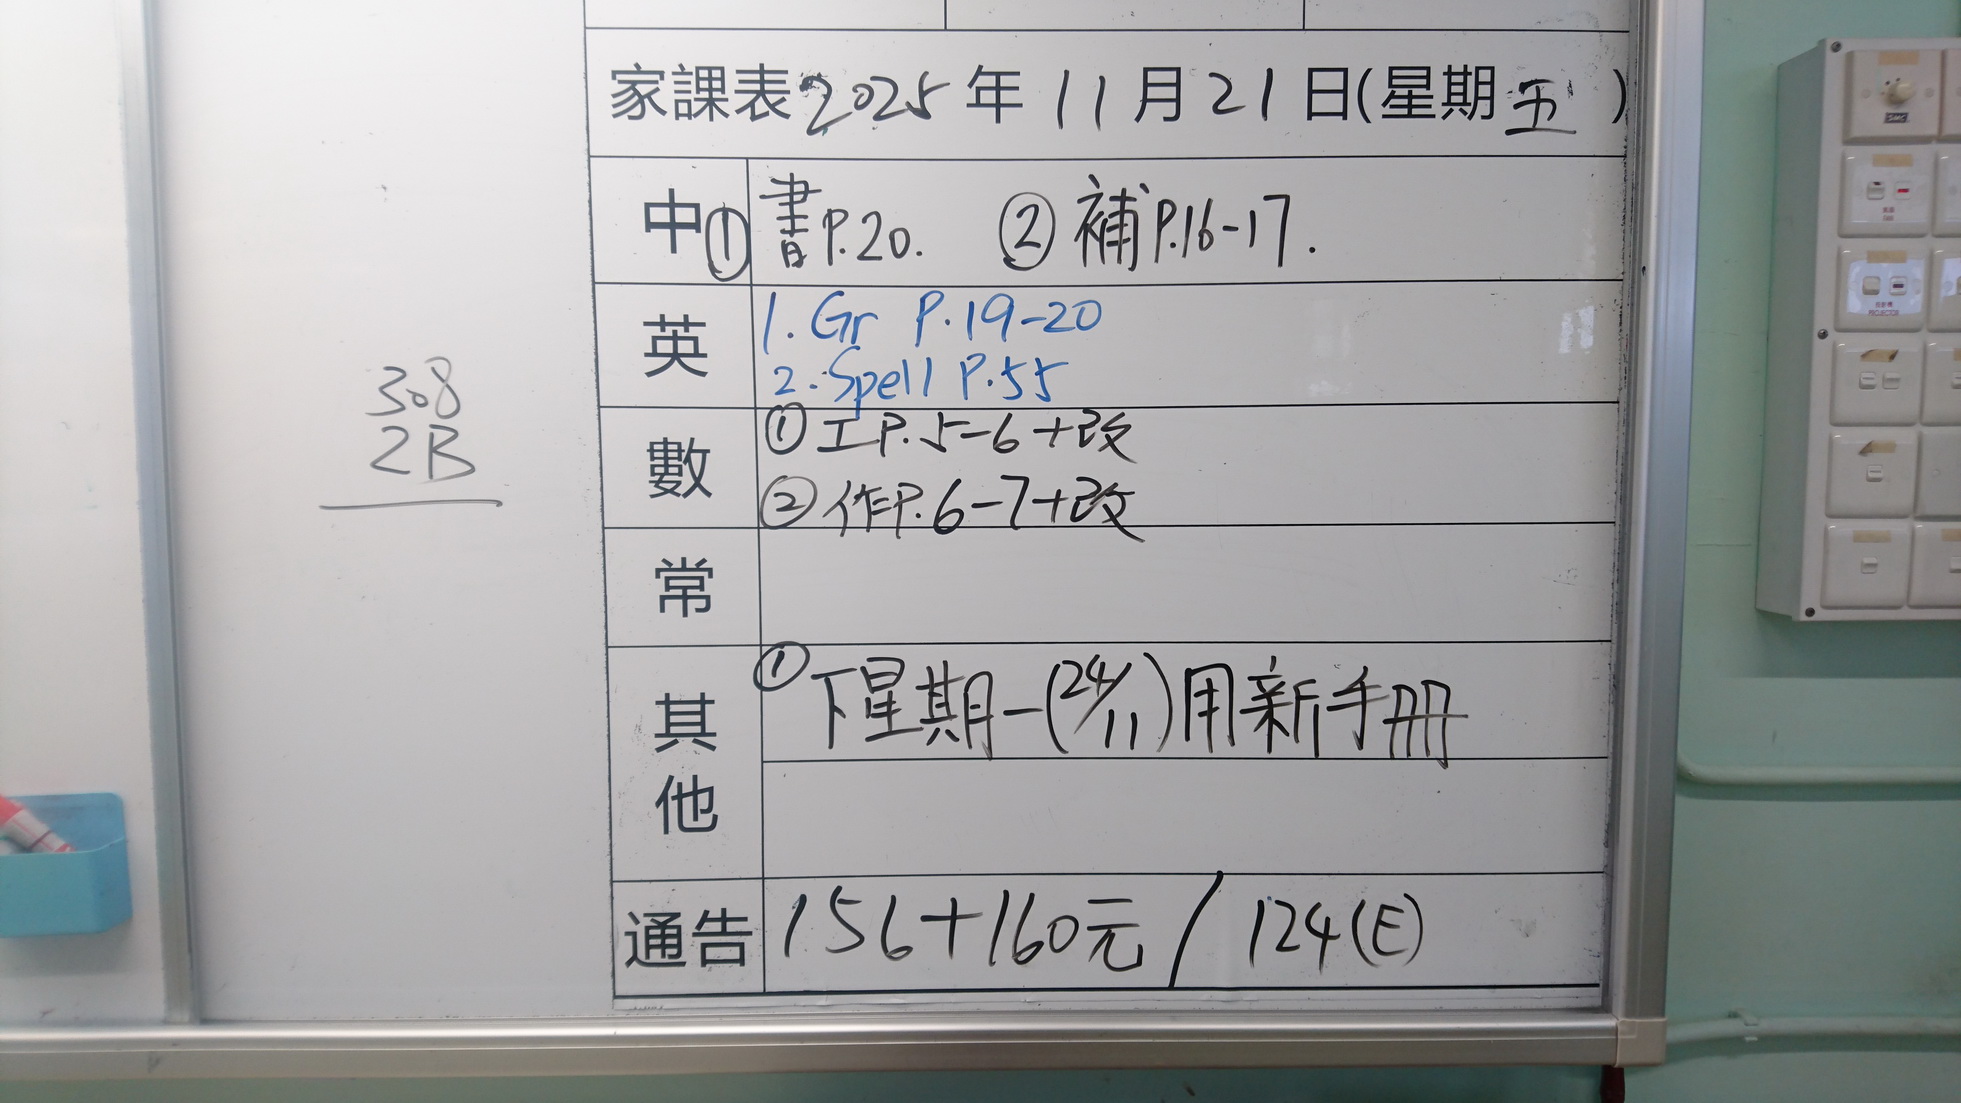 家課表2025年11月21日(星期五)
中 ①書P.20. ②補P.16-17.
英 1. Gr P.19-20
2. Spell P.55
數 ①工P.5-6+改
②作P.6-7+改
常
其他 ①下星期一(24/11)用新手冊
通告 156+160元/124(E)
308
2B
SMC
PROJECTOR